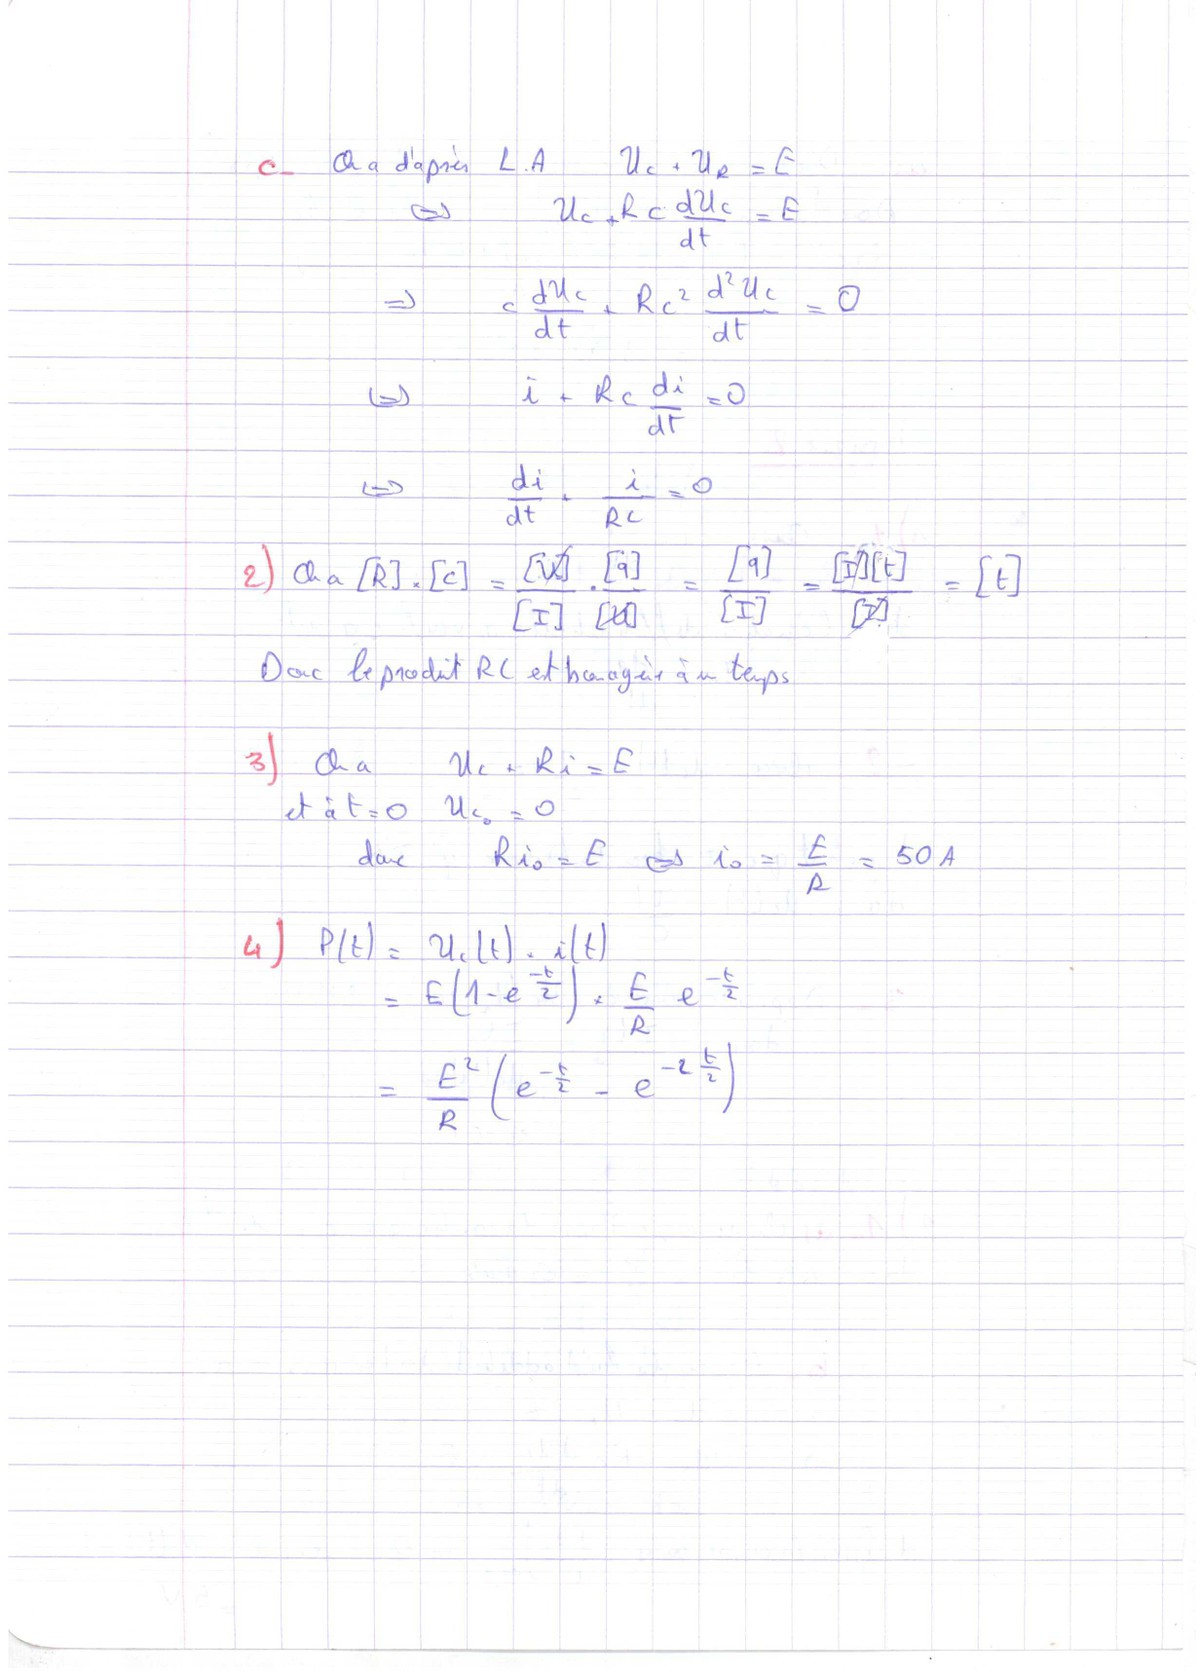 c- On a d'après L.A Uc + UR = E
⇔ Uc + RC dUc/dt = E
⇒ C dUc/dt + RC² d²Uc/dt = 0
⇔ i + RC di/dt = 0
⇔ di/dt + i/RC = 0
2) On a [R].[C] = [U]/[I] . [q]/[U] = [q]/[I] = [I][t]/[I] = [t]
Donc le produit RC est homogène à un temps
3) On a Uc + Ri = E
et à t=0 Uc₀ = 0
donc Ri₀ = E ⇔ i₀ = E/R = 50 A
4) P(t) = Uc(t) . i(t)
= E(1-e^(-t/2)) . E/R e^(-t/2)
= E²/R (e^(-t/2) - e^(-2 t/2))